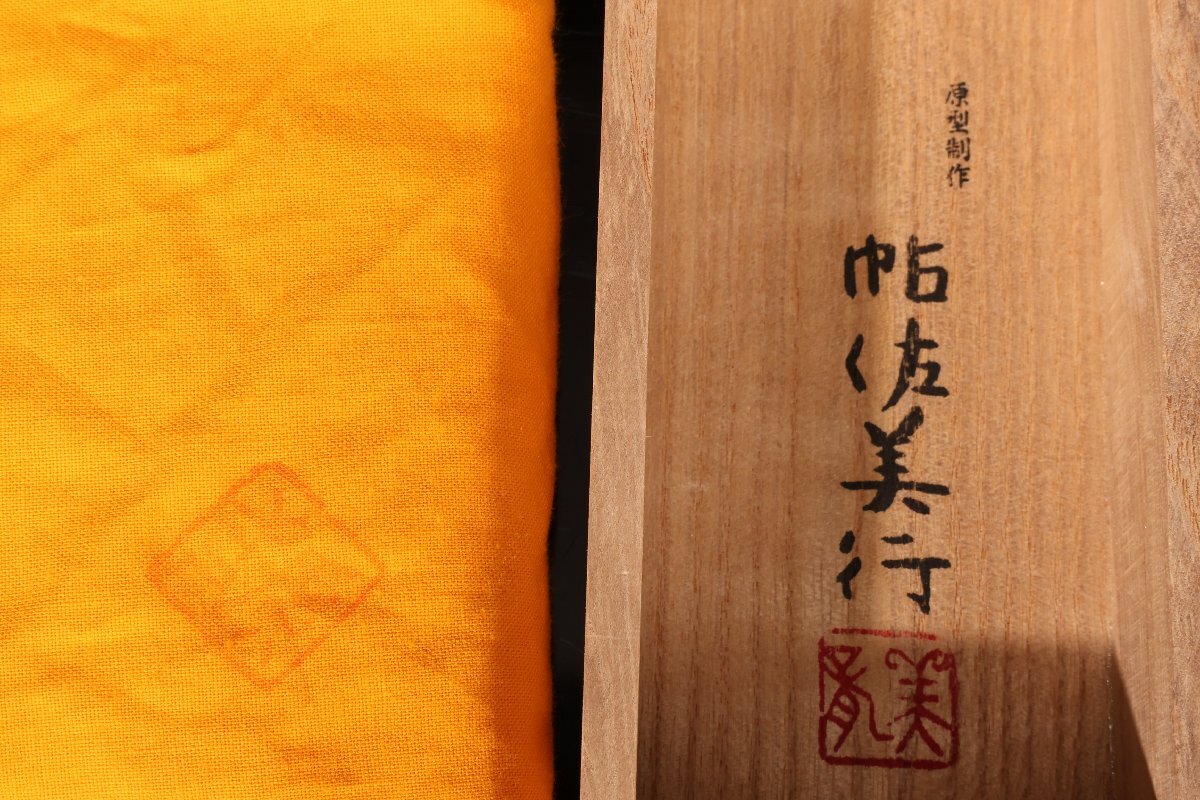 原型制作
帖佐美行